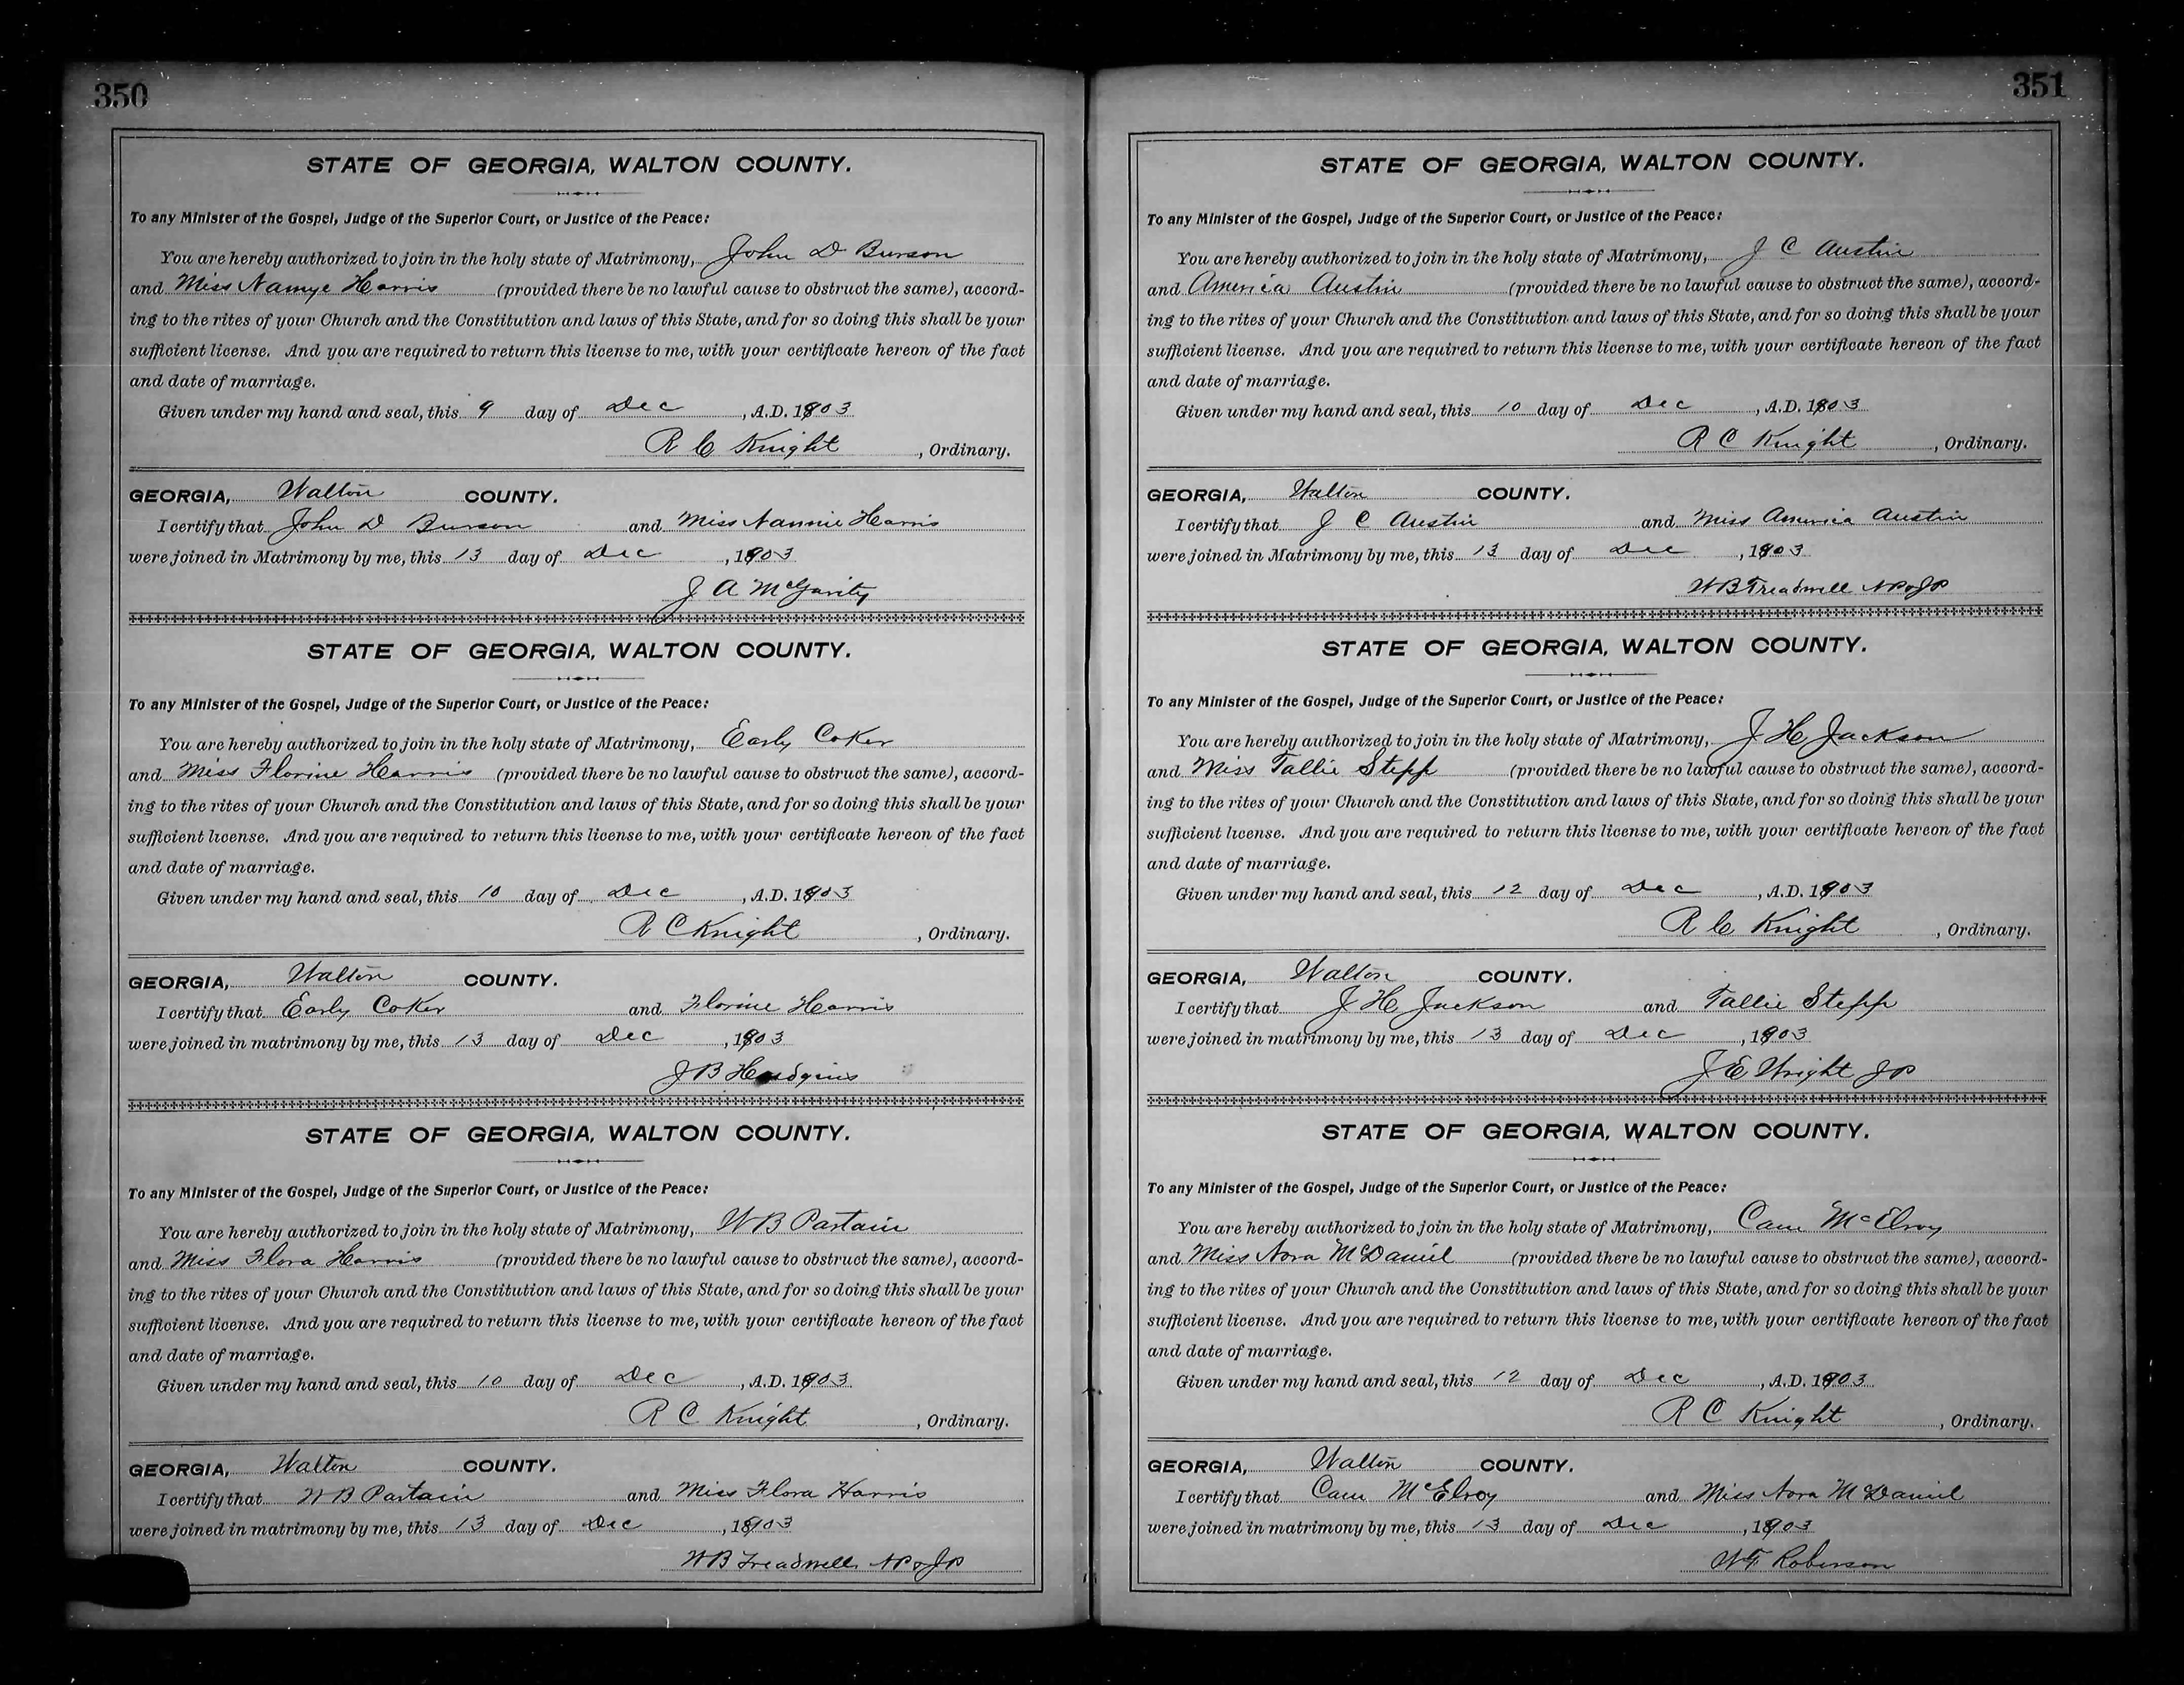 350
STATE OF GEORGIA, WALTON COUNTY.
To any Minister of the Gospel, Judge of the Superior Court, or Justice of the Peace:
You are hereby authorized to join in the holy state of Matrimony, John D Burson
and Miss Namye Harris (provided there be no lawful cause to obstruct the same), accord-
ing to the rites of your Church and the Constitution and laws of this State, and for so doing this shall be your
sufficient license. And you are required to return this license to me, with your certificate hereon of the fact
and date of marriage.
Given under my hand and seal, this 9 day of Dec, A.D. 1903
R C Knight, Ordinary.
GEORGIA, Walton COUNTY.
I certify that John D Burson and Miss Nannie Harris
were joined in Matrimony by me, this 13 day of Dec, 1903
J A McGarity
STATE OF GEORGIA, WALTON COUNTY.
To any Minister of the Gospel, Judge of the Superior Court, or Justice of the Peace:
You are hereby authorized to join in the holy state of Matrimony, Early Coker
and Miss Florine Harris (provided there be no lawful cause to obstruct the same), accord-
ing to the rites of your Church and the Constitution and laws of this State, and for so doing this shall be your
sufficient license. And you are required to return this license to me, with your certificate hereon of the fact
and date of marriage.
Given under my hand and seal, this 10 day of Dec, A.D. 1903
R C Knight, Ordinary.
GEORGIA, Walton COUNTY.
I certify that Early Coker and Florine Harris
were joined in matrimony by me, this 13 day of Dec, 1903
J B Hudgins
STATE OF GEORGIA, WALTON COUNTY.
To any Minister of the Gospel, Judge of the Superior Court, or Justice of the Peace:
You are hereby authorized to join in the holy state of Matrimony, W B Partain
and Miss Flora Harris (provided there be no lawful cause to obstruct the same), accord-
ing to the rites of your Church and the Constitution and laws of this State, and for so doing this shall be your
sufficient license. And you are required to return this license to me, with your certificate hereon of the fact
and date of marriage.
Given under my hand and seal, this 10 day of Dec, A.D. 1903
R C Knight, Ordinary.
GEORGIA, Walton COUNTY.
I certify that W B Partain and Miss Flora Harris
were joined in matrimony by me, this 13 day of Dec, 1903
W B Treadwell NP & JP
351
STATE OF GEORGIA, WALTON COUNTY.
To any Minister of the Gospel, Judge of the Superior Court, or Justice of the Peace:
You are hereby authorized to join in the holy state of Matrimony, J C Austin
and America Austin (provided there be no lawful cause to obstruct the same), accord-
ing to the rites of your Church and the Constitution and laws of this State, and for so doing this shall be your
sufficient license. And you are required to return this license to me, with your certificate hereon of the fact
and date of marriage.
Given under my hand and seal, this 10 day of Dec, A.D. 1903
R C Knight, Ordinary.
GEORGIA, Walton COUNTY.
I certify that J C Austin and Miss America Austin
were joined in Matrimony by me, this 13 day of Dec, 1903
W B Treadwell NP & JP
STATE OF GEORGIA, WALTON COUNTY.
To any Minister of the Gospel, Judge of the Superior Court, or Justice of the Peace:
You are hereby authorized to join in the holy state of Matrimony, J H Jackson
and Miss Tallie Stepp (provided there be no lawful cause to obstruct the same), accord-
ing to the rites of your Church and the Constitution and laws of this State, and for so doing this shall be your
sufficient license. And you are required to return this license to me, with your certificate hereon of the fact
and date of marriage.
Given under my hand and seal, this 12 day of Dec, A.D. 1903
R C Knight, Ordinary.
GEORGIA, Walton COUNTY.
I certify that J H Jackson and Tallie Stepp
were joined in matrimony by me, this 13 day of Dec, 1903
J E Wright JP
STATE OF GEORGIA, WALTON COUNTY.
To any Minister of the Gospel, Judge of the Superior Court, or Justice of the Peace:
You are hereby authorized to join in the holy state of Matrimony, Cam McElroy
and Miss Nora McDaniel (provided there be no lawful cause to obstruct the same), accord-
ing to the rites of your Church and the Constitution and laws of this State, and for so doing this shall be your
sufficient license. And you are required to return this license to me, with your certificate hereon of the fact
and date of marriage.
Given under my hand and seal, this 12 day of Dec, A.D. 1903
R C Knight, Ordinary.
GEORGIA, Walton COUNTY.
I certify that Cam McElroy and Miss Nora McDaniel
were joined in matrimony by me, this 13 day of Dec, 1903
W F Roberson